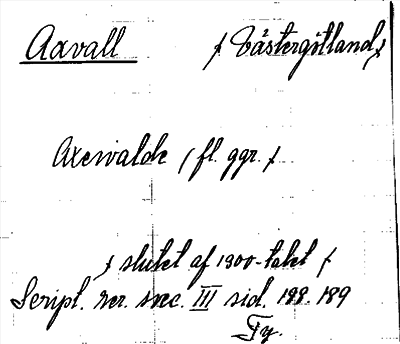 Axvall (Västergötland)
Axewalde (fl. ggr.)
(slutet af 1300-talet)
Script. rer. svec. III sid. 188. 189
Fy.